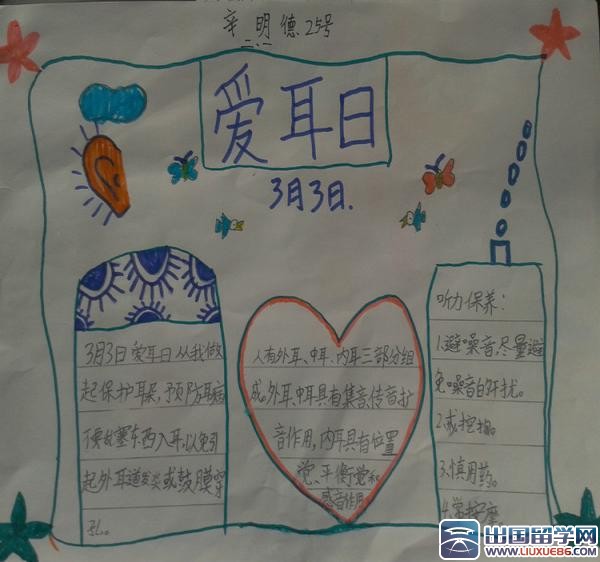 辛明德 25号
二、2
爱耳日
3月3日.
3月3日爱耳日从我做
起保护耳朵,预防耳病
不要乱塞东西入耳,以免引
起外耳道发炎或鼓膜穿
孔。
人有外耳、中耳、内耳三部分组
成。外耳、中耳具有集音、传音护
音作用,内耳具有位置
觉、平衡觉和
感音作用
听力保养:
1.避噪音,尽量避
免噪音的干扰。
2.戒挖掏。
3.慎用药。
4.常按摩。
出国留学网
www.liuxue86.com